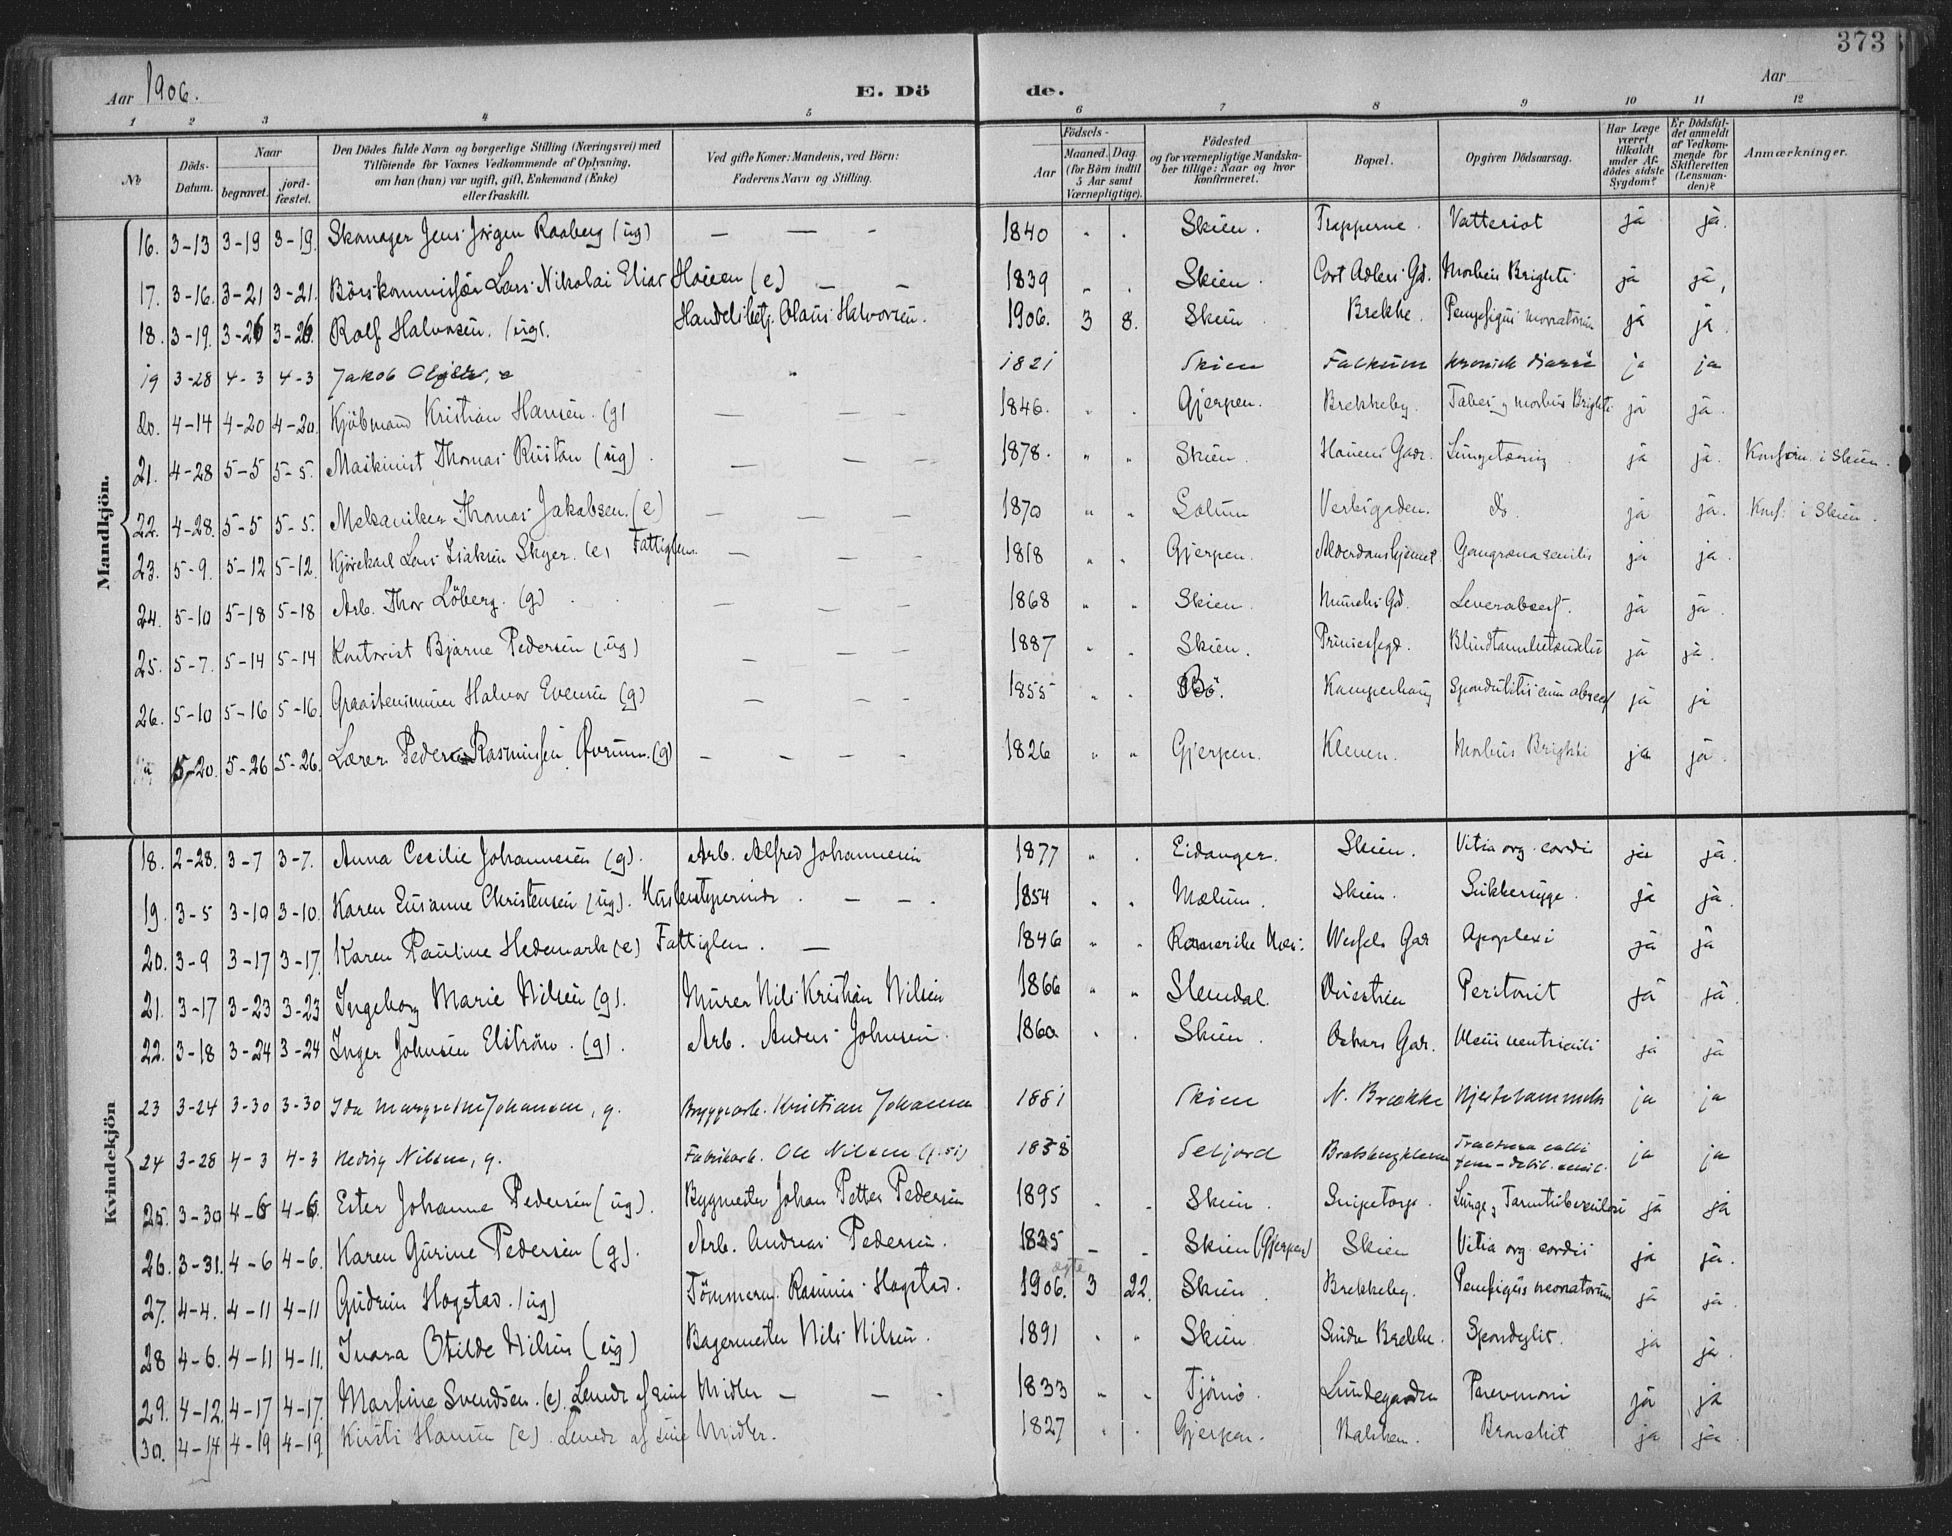 373
Aar 1906.
E. Dö
de.
Aar
1 2 3 4 5 6 7 8 9 10 11 12
No
Döds-Datum.
Naar
begravet.
jord-fæstet.
Den Dödes fulde Navn og borgerlige Stilling (Næringsvei) med
Tilföiende for Voxnes Vedkommende af Oplysning,
om han (hun) var ugift, gift, Enkemand (Enke)
eller fraskilt.
Ved gifte Koner: Mandens, ved Börn:
Faderens Navn og Stilling.
Födsels-
Aar
Maaned. Dag.
(for Börn indtil
5 Aar samt
Værnepligtige).
Födested
og for værnepligtige Mandska-
ber tillige: Naar og hvor
konfirmeret.
Bopæl.
Opgiven Dödsaarsag.
Har Læge
været
tilkaldt
under Af-
dödes sidste
Sygdom?
Er Dödsfal-
det anmeldt
af Vedkom-
mende for
Skifteretten
(Lensman-
den)?
Anmærkninger.
Mandkjön.
16. 3-13 3-19 3-19. Skomager Jens Jörgen Raaberg (ug) — — - 1840 Skien. Trapperne. Vattersot ja ja.
17. 3-16. 3-21 3-21. Börskommissær Lars Nikolai Elias Hoien (e) — - 1839 Skien. Cort Adlers Gd. Morbus Brighti ja ja,
18. 3-19. 3-26 3-26. Rolf Halvorsen. (ug). Handelsbetj. Olaus Halvorsen. 1906. 3 8. Skien Brekke. Pemfigus neonatorum ja ja.
19 3-28 4-3 4-3 Jakob , e " 1821 Skien Falkum kronisk diarré ja ja
20. 4-14 4-20 4-20. Kjöbmand Kristian Hansen. (g) — — — 1846. Gjerpen. Brekkeby. Tabes og morbus Brighti ja ja.
21. 4-28 5-5 5-5. Maskinist Thomas Rustan (ug). — — - 1878. Skien. Hauens Gade. Lungetæring. ja ja. Konfirm. i Skien.
22. 4-28. 5-5 5-5. Mekaniker Thomas Jakobsen. (e) — — — 1870 Solum Verksgaden. do. ja ja. Konf. i Skien.
23. 5-9. 5-12 5-12. Kjörekarl Lars Isaksen Skyer. (e) Fattiglem. — — — 1818 Gjerpen. Alderdomshjemmet. Gangræna senilis ja ja.
24. 5-10 5-18 5-18 Arb. Thor Löberg. (g) — — — 1868 Skien. Munchs Gd. Leverabsces. ja ja.
25. 5-7. 5-14 5-14 Kontorist Bjarne Pedersen (ug) — — — 1887 Skien. Prinsessegd. Blindtarmbetændelse ja ja.
26. 5-10 5-16 5-16. Graastensminer Halvor Evensen (g) — — — 1855 Bö. Kamperhaug Spondulitis cum absces ja ja
5-20. 5-26 5-26. Lærer Peder Rasmussen Övrum. (g) — — — — 1826 Gjerpen. Kleven. Morbus Brighti ja ja.
Kvindekjön
18. 2-28. 3-7 3-7. Anna Cecilie Johannesen (g). Arb. Alfred Johannesen 1877 Eidanger. Skien. Vitia org. cordis ja ja.
19. 3-5 3-10 3-10. Karen Susanne Christensen (ug). Husbestyrerinde. — — . 1854 Mælum. Skien. Sukkersyge. ja ja.
20. 3-9 3-17 3-17. Karen Pauline Hedemark (e) Fattiglem. — 1846 Romerike Nes. Wessels Gade Apoplexi ja ja
21. 3-17 3-23 3-23 Ingeborg Marie Nilsen (g). Murer Nils Kristian Nilsen 1866 Slemdal. Peritonit ja ja.
22. 3-18 3-24 3-24 Inger Johnsen Elström. (g). Arb. Anders Johnsen. 1860 Skien. Oskars Gade. Ulcus ventriculi ja ja
23 3-24 3-30 3-30 Ida Margrethe Johansen, g. Bryggearb. Kristian Johansen 1881 Skien N. Brække Hjertelammelse ja ja
24 3-28 4-3 4-3 Hedvig Nilsen, g. Fabrikarb. Ole Nilsen 1838 Seljord Bratsbergkleven Fractura colli
fem - debil. senil. ja ja
25. 3-30 4-6 4-6. Ester Johanne Pedersen (ug). Bygmester Johan Petter Pedersen 1895 Skien. Snipetorp. Lunge og Tarmtuberkulose ja ja
26. 3-31. 4-6 4-6. Karen Gurine Pedersen (g). Arb. Andreas Pedersen. 1835 Skien (Gjerpen) Skien Vitia org. cordis ja ja.
27. 4-4. 4-11 4-11 Gudrun Hogstad. (ug) Tömmerm. Rasmus Hogstad. ægte 1906. 3 22. Skien. Brekkeby. Pemfigus neonatorum ja ja.
28 4-6. 4-11 4-11. Ivara Otilde Nilsen (ug) Bagermester Nils Nilsen. 1891 Skien Söndre Brekke. Spondylit. ja ja.
29. 4-12. 4-17 4-17. Martine Svendsen. (e). Levede af sine Midler — — . 1833 Tjömö. Lundegaden Pnevmoni ja ja
30. 4-14 4-19 4-19 Kirsti Hansen (e). Levede af sine Midler. 1827 Gjerpen. Bakken. Bronchit ja ja.